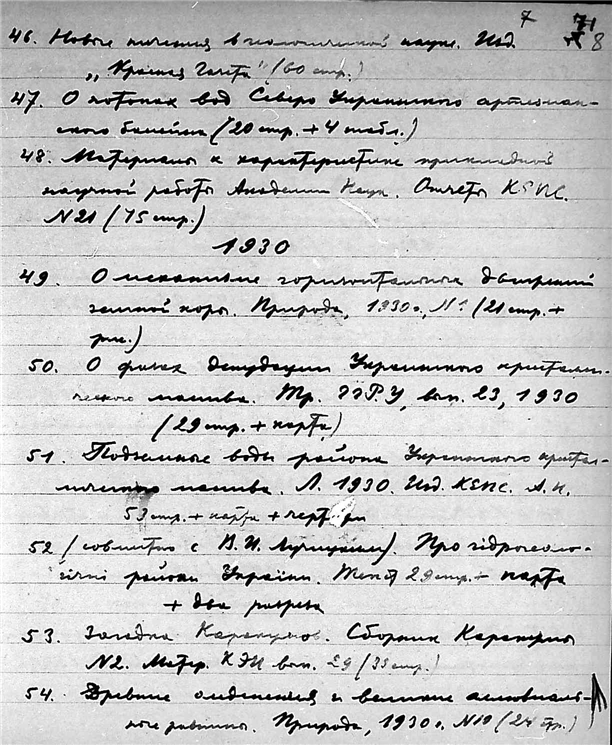 7 71 8
46. Новые течения в геологической науке. Изд.
„Красная Газета" (60 стр.)
47. О потоках вод Северо Украинского артезиан-
ского бассейна (20 стр. + 4 табл.)
48. Материалы к характеристике прикладной
научной работы Академии Наук. Отчеты КЕПС.
N21 (75 стр.)
1930
49. О механизме горизонтальных движений
земной коры. Природа, 1930 г., N (21 стр. +
рис.)
50. О фазах денудации Украинского кристалли-
ческого массива. Тр. ГГРУ, вып. 23, 1930
(29 стр. + карта)
51. Подземные воды района Украинского кристал-
лического массива. Л. 1930. Изд. КЕПС. А.Н.
53 стр. + карта +
52 (совместно с В. И. Лучицким). Про гідрогеоло-
гічні райони України. 29 стр. + карта
+ два разреза
53. Загадка Каракумов. Сборник Каракумы
N2. Матер. КЭИ вып. 29 (35 стр.)
54. Древние оледенения и великие аллювиаль-
ные равнины. Природа, 1930 г. N10 (24 стр.)